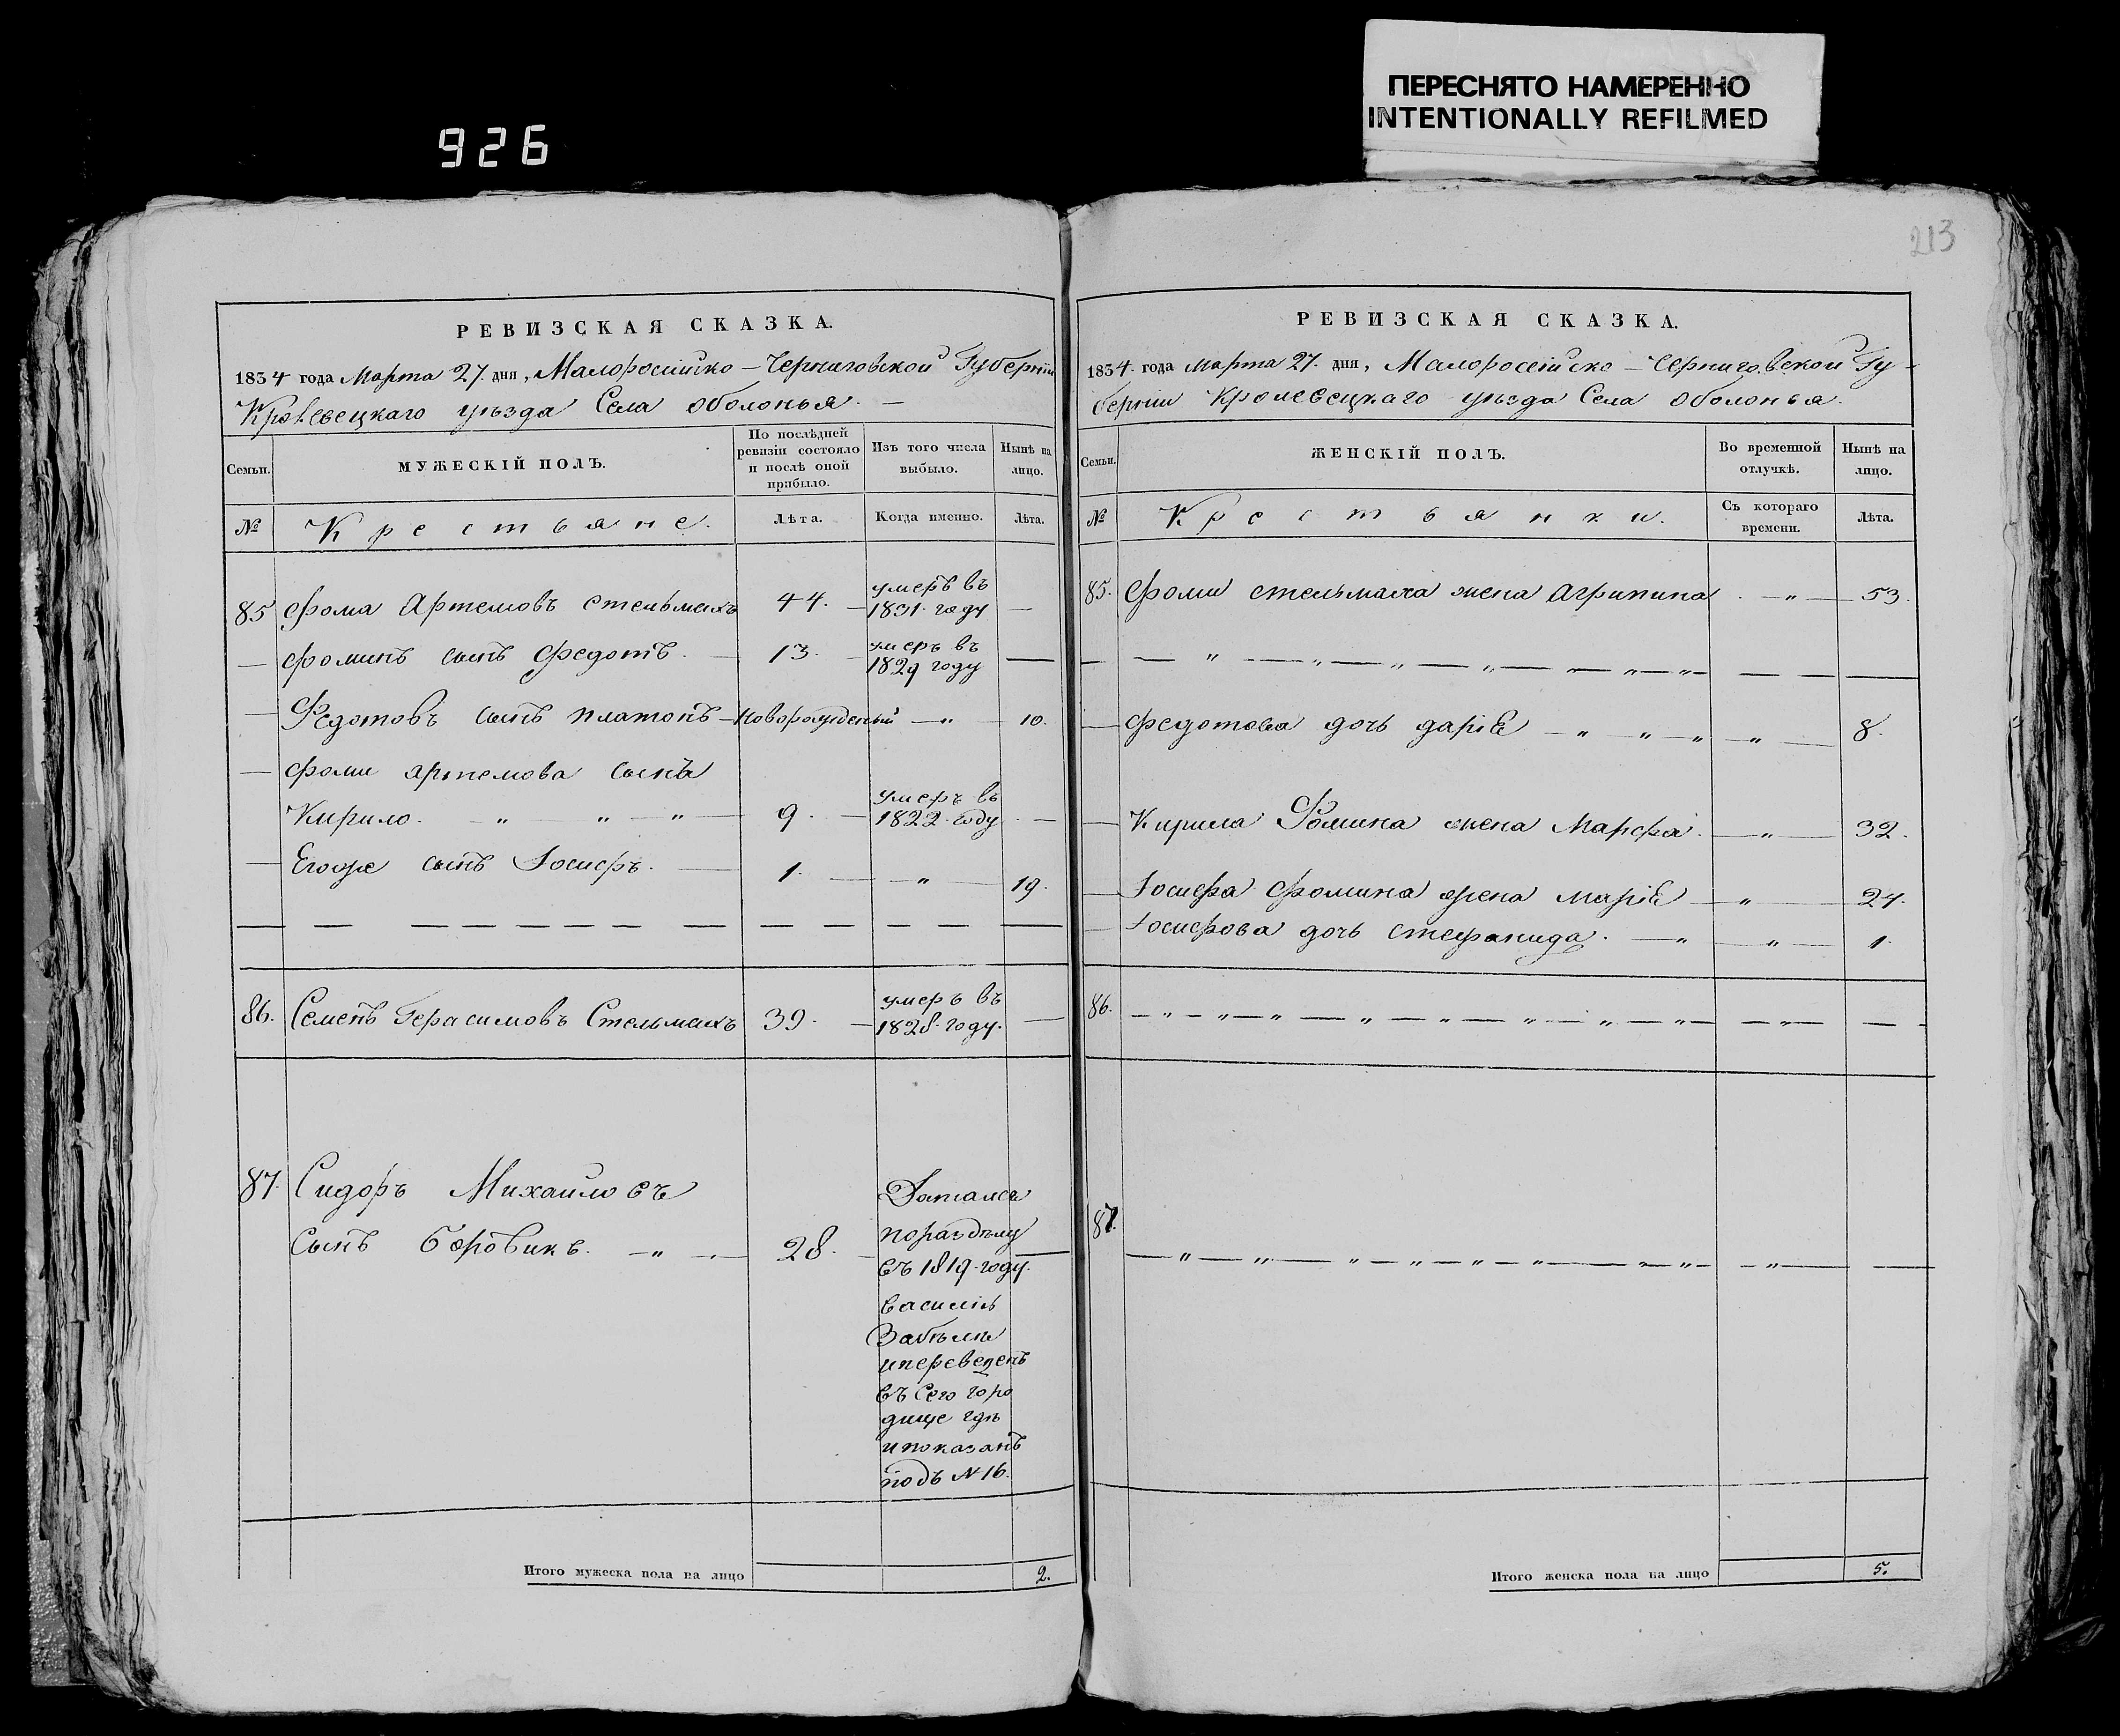 926
ПЕРЕСНЯТО НАМЕРЕННО
INTENTIONALLY REFILMED
213
РЕВИЗСКАЯ СКАЗКА.
1834 года Марта 27. дня, Малоросійско — Черниговской Губерніи
Кролевецкаго уѣзда Села Оболонья. —
Семьи.
МУЖЕСКІЙ ПОЛЪ.
По послѣдней ревизіи состояло и послѣ оной прибыло.
Изъ того числа выбыло.
Нынѣ на лицо.
№
Крестьяне.
Лѣта.
Когда именно.
Лѣта.
85 Фома Артемовъ Стельмахъ 44. — умеръ въ 1831. году —
— Фоминъ сынъ Федотъ. — 13. — умеръ въ 1829 году —
— Федотовъ сынъ Платонъ — новорожденый — " — 10.
— Фоми Артемова сынъ
Кирило. — " — " — " — 9. — умеръ въ 1822. году. —
— Егоже сынъ Іосифъ. — 1. — " — 19.
86. Семенъ Герасимовъ Стельмахъ 39. — умеръ въ 1828. году. —
87. Сидоръ Михайловъ
сынъ Боровикъ. — " — 28. —
Досталсь
поразделу
въ 1819. году.
Василію
Забѣлѣ
и переведенъ
въ Село Горо
дище гдѣ
и показанъ
подъ № 16.
Итого мужеска пола на лицо 2.
РЕВИЗСКАЯ СКАЗКА.
1834. года Марта 27. дня, Малоросейско — Черниговской Гу-
берніи Кролевецкаго уѣзда Села Оболонья.
Семьи.
ЖЕНСКІЙ ПОЛЪ.
Во временной отлучкѣ.
Нынѣ на лицо.
№
Крестьянки.
Съ котораго времени.
Лѣта.
85. Фоми Стельмаха жена Агрипина . — " — 53.
— Федотова дочь Даріе — " — " — " — " — 8.
— Кирила Фомина жена Марфа. — " — 32.
— Іосифа Фомина жена Маріе — " — 24.
— Іосифова дочь Стефанида. — " — " — 1.
86. — " — " — " — " — " — " — " — " — " —
87. — " — " — " — " — " — " — " — " — " —
Итого женска пола на лицо 5.